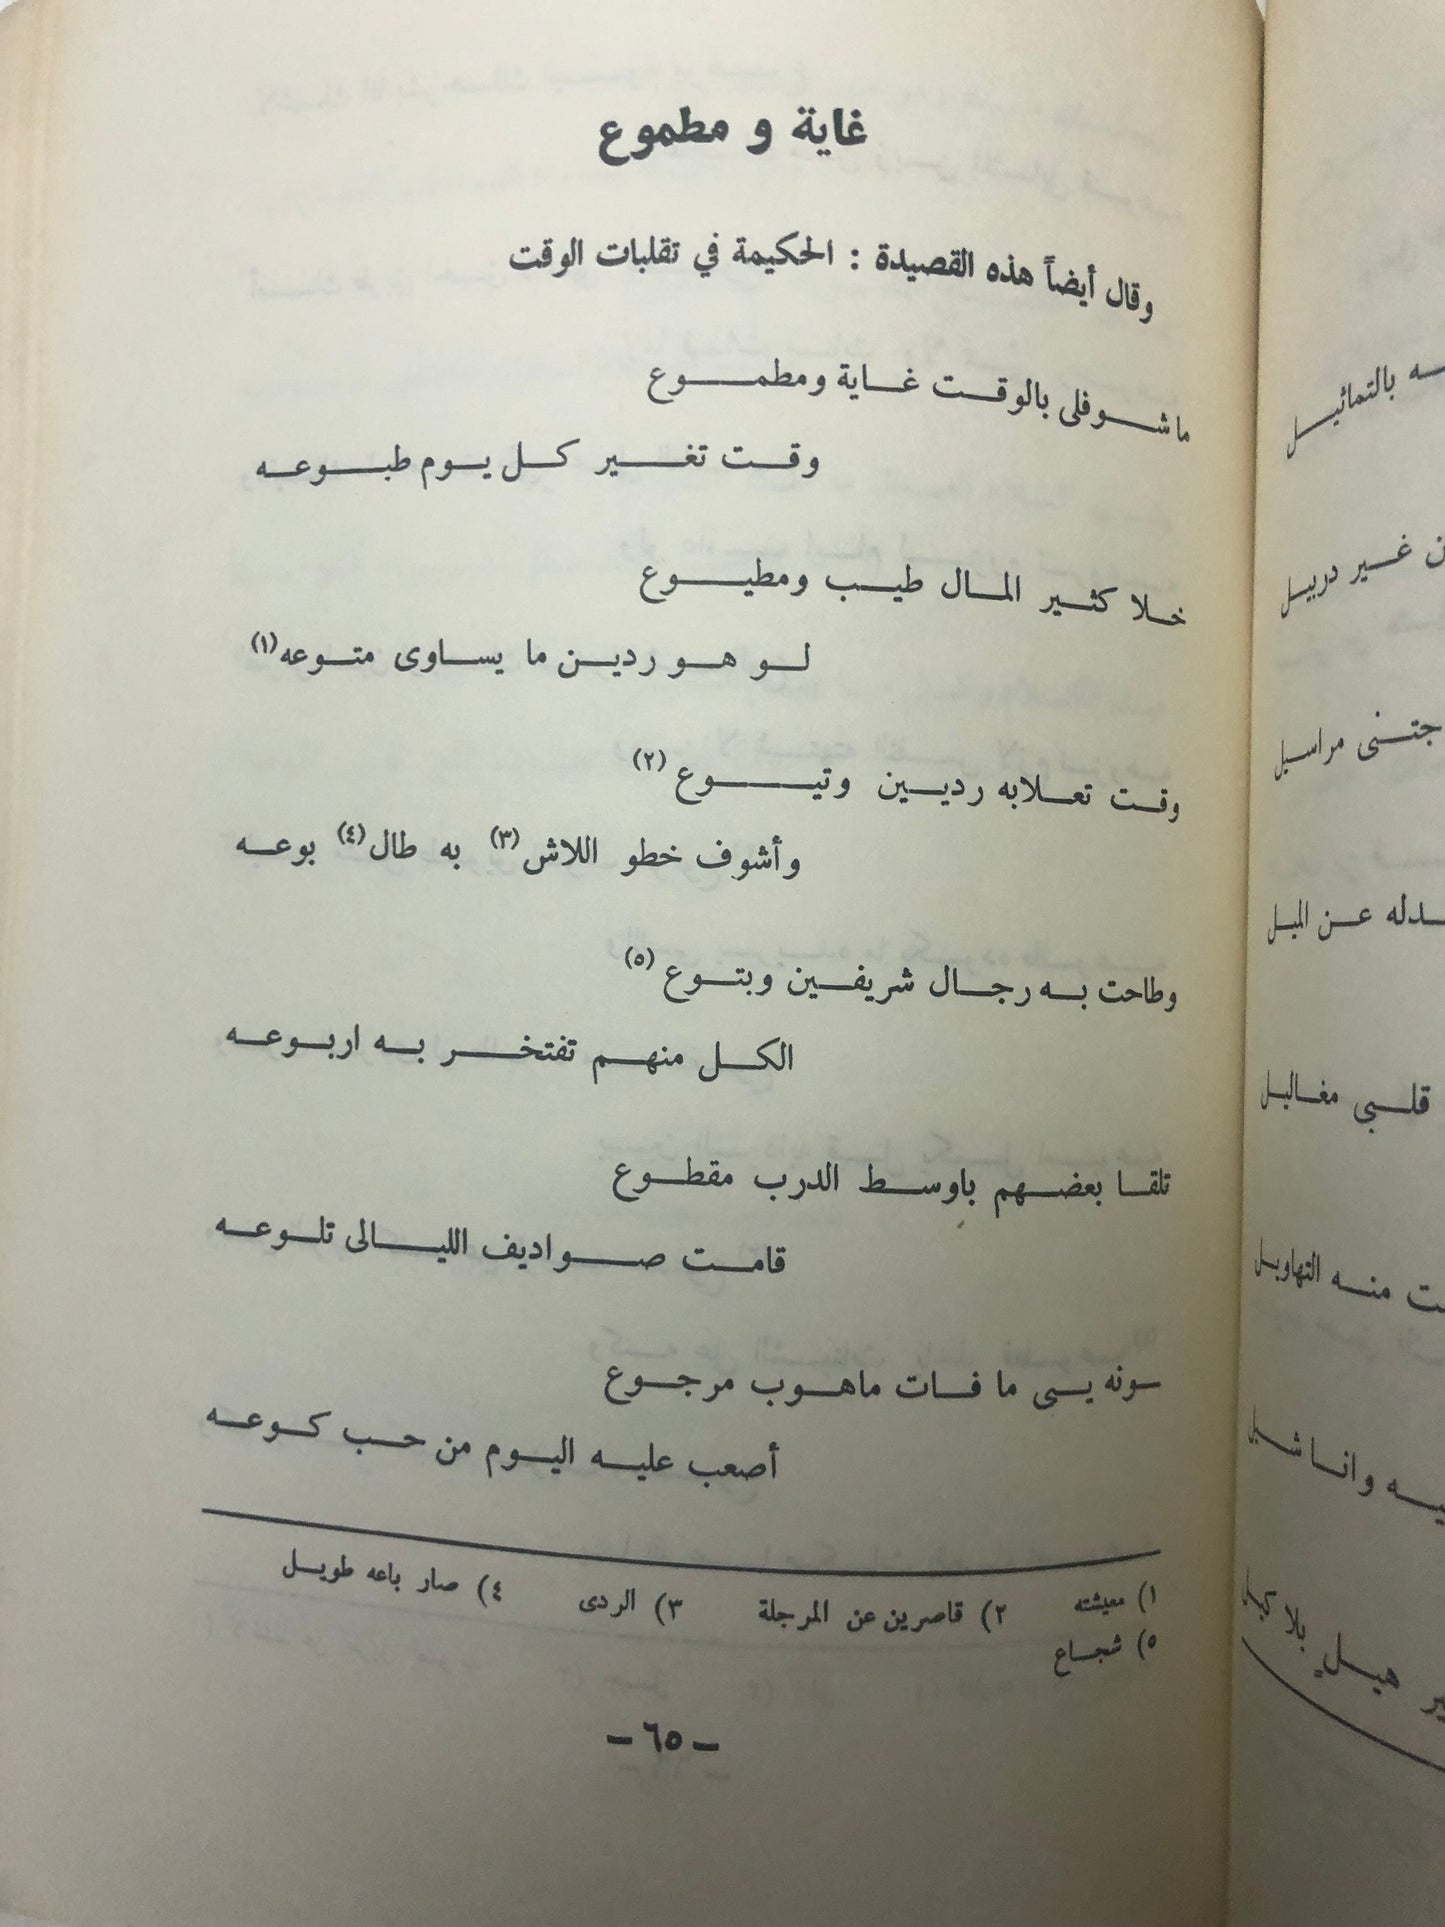 غاية و مطموع
وقال أيضاً هذه القصيدة : الحكيمة في تقلبات الوقت
ما شوفلى بالوقت غاية ومطموع
وقت تغير كل يوم طبوعه
خلا كثير المال طيب ومطيوع
لو هو ردين ما يساوى متوعه(١)
وقت تعلابه رديين وتيوع (٢)
وأشوف خطو اللاش(٣) به طال(٤) بوعه
وطاحت به رجال شريفين وبتوع (٥)
الكل منهم تفتخر به اربوعه
تلقا بعضهم باوسط الدرب مقطوع
قامت صواديف الليالى تلوعه
ـونه يبى ما فات ماهوب مرجوع
أصعب عليه اليوم من حب كوعه
١) معيشته ٢) قاصرين عن المرجلة ٣) الردى ٤) صار باعه طويل
٥) شجاع
- ٦٥ -
ـه بالتمائيل
غير دربيل
جتنى مراسيل
ـدله عن الميل
قلبى مغاليل
ـت منه التهاويل
ـيه وانا شيل
هيل بلا كيل